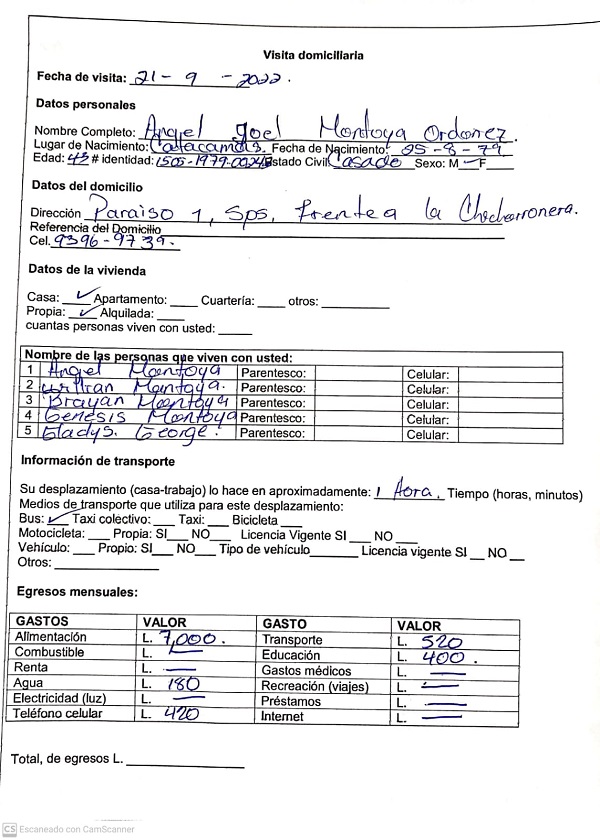 Visita domiciliaria
Fecha de visita: 21 - 9 - 2022.
Datos personales
Nombre Completo: Angel Joel Montoya Ordonez.
Lugar de Nacimiento: Catacamas. Fecha de Nacimiento: 05 - 8 - 79
Edad: 43 # identidad: 1505-1979-00243 Estado Civil Casado Sexo: M F
Datos del domicilio
Dirección Paraiso 1, Sps, Frente a la Chicharronera.
Referencia del Domicilio
Cel. 9396-9739.
Datos de la vivienda
Casa: ✓ Apartamento: ____ Cuartería: ____ otros: ____
Propia: ✓ Alquilada: ____
cuantas personas viven con usted: ____
Nombre de las personas que viven con usted:
1 Angel Montoya Parentesco: Celular:
2 Montoya. Parentesco: Celular:
3 Brayan Montoya Parentesco: Celular:
4 Genesis Montoya Parentesco: Celular:
5 Gladys. George. Parentesco: Celular:
Información de transporte
Su desplazamiento (casa-trabajo) lo hace en aproximadamente: 1 Hora. Tiempo (horas, minutos)
Medios de transporte que utiliza para este desplazamiento:
Bus: ✓ Taxi colectivo: ___ Taxi: ___ Bicicleta ___
Motocicleta: ___ Propia: SI___ NO___ Licencia Vigente SI ___ NO ___
Vehículo: ___ Propio: SI___ NO___ Tipo de vehículo_______ Licencia vigente SI __ NO __
Otros: ____
Egresos mensuales:
GASTOS VALOR GASTO VALOR
Alimentación L. 7,000. Transporte L. 520
Combustible L. — Educación L. 400.
Renta L. — Gastos médicos L. —
Agua L. 180 Recreación (viajes) L. —
Electricidad (luz) L. — Préstamos L. —
Teléfono celular L. 420 Internet L. —
Total, de egresos L. ____
CS Escaneado con CamScanner